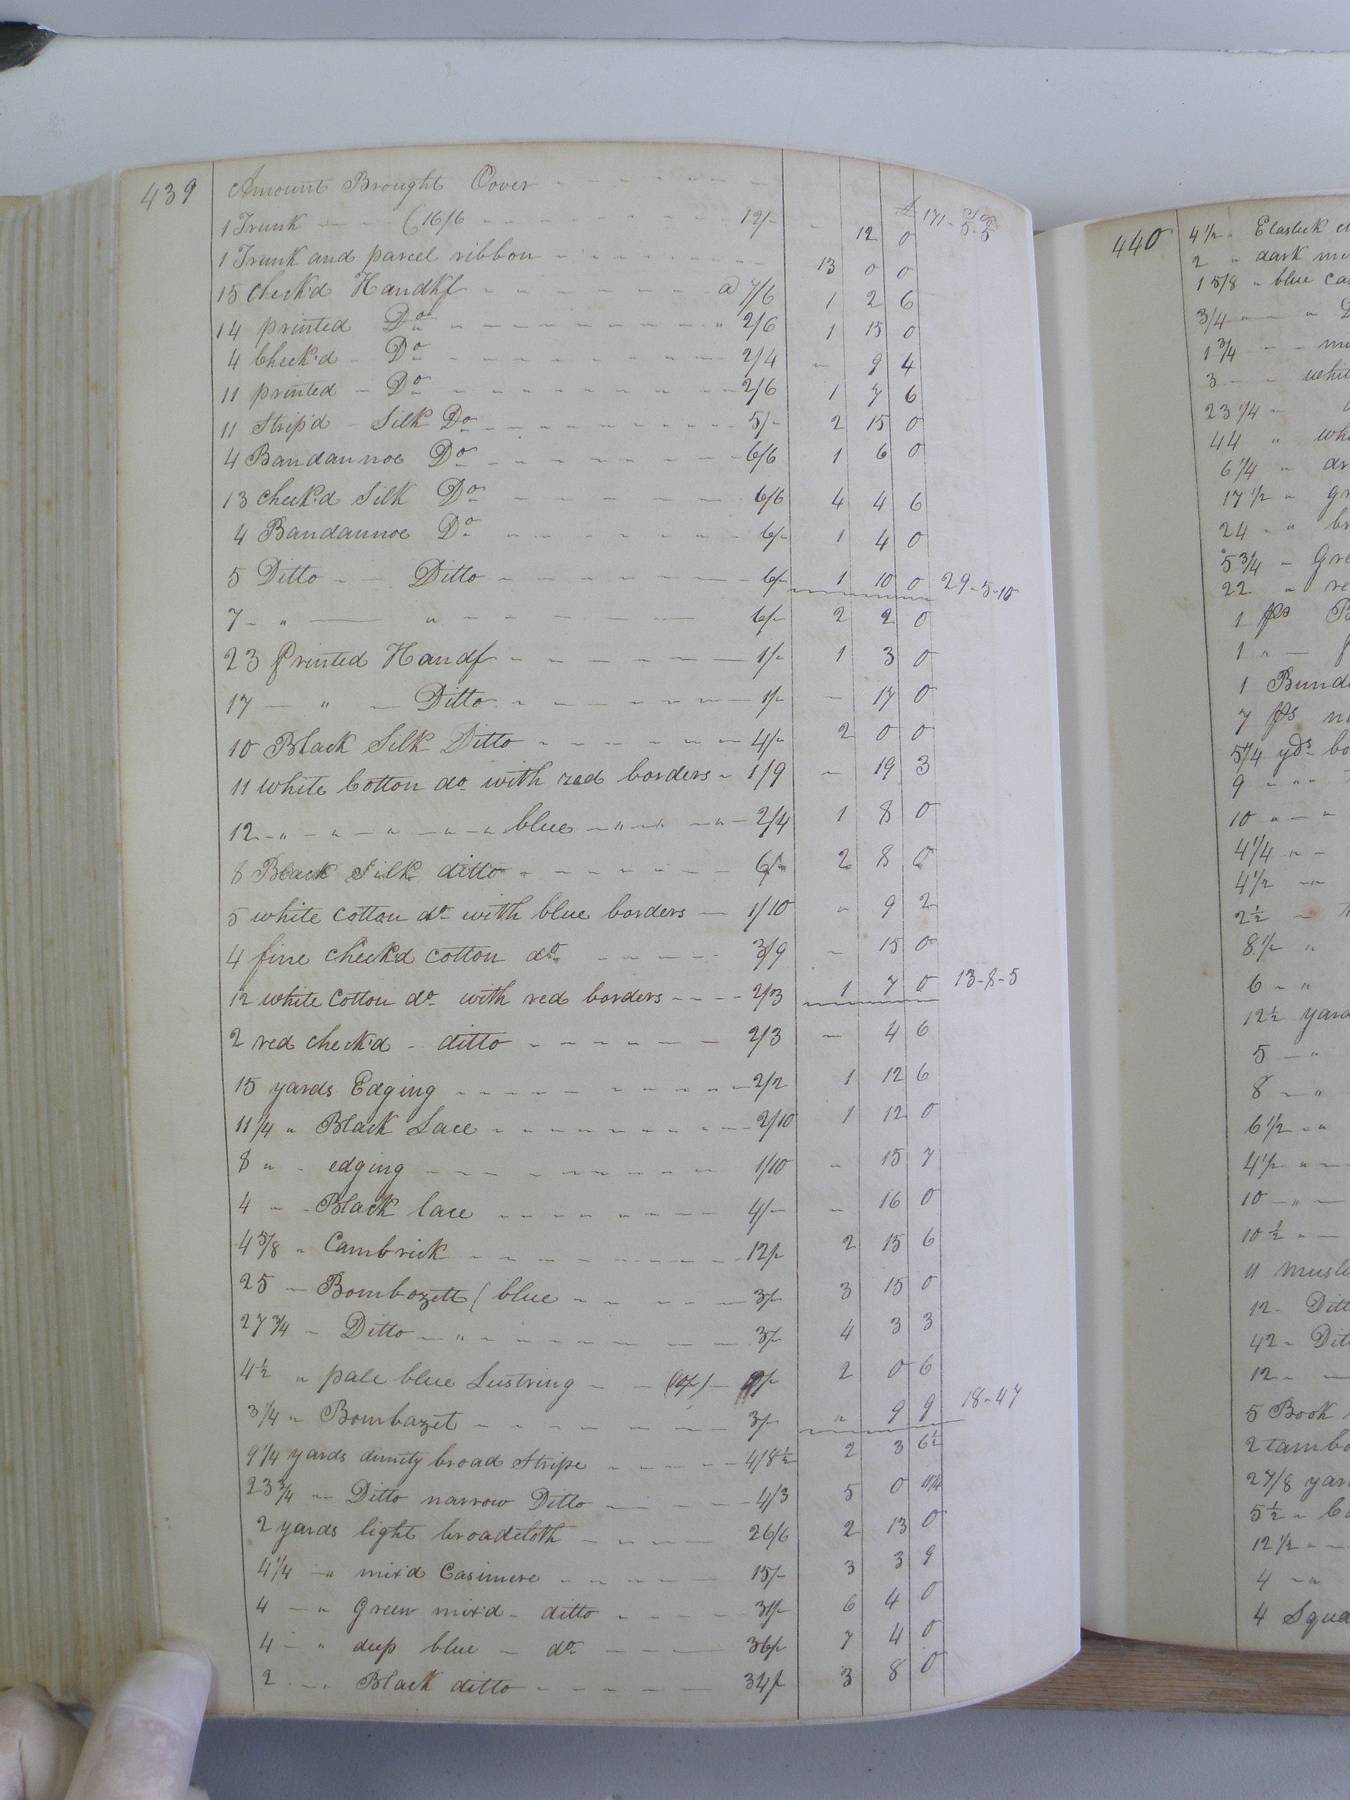 439 Amount Brought Over
1 Trunk (16/6 12/- 12 0 £ 171
1 Trunk and parcel ribbon 13 0 0
15 check'd Handkfs a 7/6 1 2 6
14 printed Do " 2/6 1 15 0
4 Check'd Do 2/4 - 9 4
11 printed - Do 2/6 1 7 6
11 Strip'd - Silk Do 5/- 2 15 0
4 Bandannoe Do 6/6 1 6 0
13 check'd Silk Do 6/6 4 4 6
4 Bandannoe Do 6/- 1 4 0
5 Ditto Ditto 6/- 1 10 0 29-5-10
7 " " 6/- 2 2 0
23 Printed Handf 1/- 1 3 0
17 " Ditto 1/- - 17 0
10 Black Silk Ditto 4/- 2 0 0
11 white Cotton do with red borders 1/9 - 19 3
12 " " " " " blue " 2/4 1 8 0
8 Black Silk ditto 6/- 2 8 0
5 white cotton do with blue borders 1/10 " 9 2
4 fine check'd cotton do 3/9 - 15 0
12 white cotton do with red borders 2/3 1 7 0 13-8-5
2 red check'd - ditto 2/3 - 4 6
15 yards Edging 2/2 1 12 6
11 1/4 " Black Lace 2/10 1 12 0
8 " edging 1/10 - 15 7
4 - - Black lace 4/- - 16 0
4 5/8 " Cambrick 12/- 2 15 6
25 - Bombozett (blue 3/- 3 15 0
27 3/4 - Ditto " 3/- 4 3 3
4 1/2 " pale blue Lustring 9/- 2 0 6
3 1/4 " Bombazet 3/- " 9 9 18-4 7
9 1/4 yards dimity broad Stripe 4/8 1/2 2 3 6 1/2
23 3/4 - Ditto narrow Ditto 4/3 5 0 11 1/4
2 yards light broadcloth 26/6 2 13 0
4 1/4 " mix'd Casimere 15/- 3 3 9
4 - " Green mix'd - ditto 31/- 6 4 0
4 - " deep blue - do 36/- 7 4 0
2 Black ditto 34/- 3 8 0
440 4 1/2 - Elastick
2 " dark
1 5/8 " blue
3/4
1 3/4
3
23 1/4
44 "
6 1/4 "
17 1/2 "
24 - "
5 3/4 -
22 "
1 ps
1 " -
1
7 ps
5 1/4 yds
9
10
4 1/4
4 1/2
2 1/2
8 1/2 "
6 - "
12 1/2
5 - "
8 - "
6 1/2
4 1/2
10
10 1/2
11
12 -
42 -
12 -
5 Book
2
2 7/8
5 1/2
12 1/2
4
4